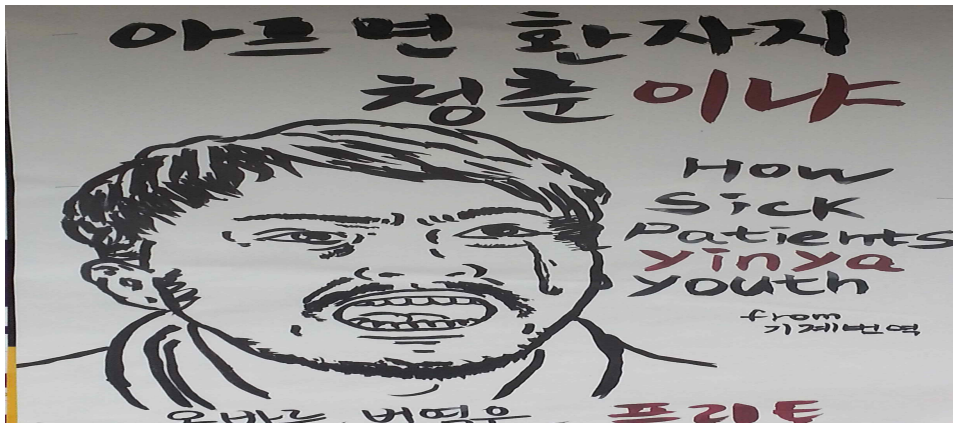 아프면 환자지
청춘이냐
How
Sick
Patients
yinya
youth
from
기계번역